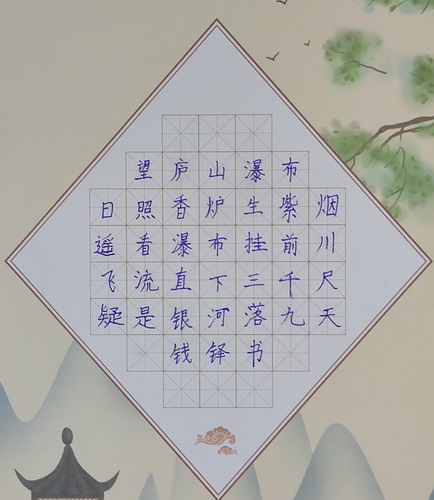 望庐山瀑布
日照香炉生紫烟
遥看瀑布挂前川
飞流直下三千尺
疑是银河落九天
钱铎书